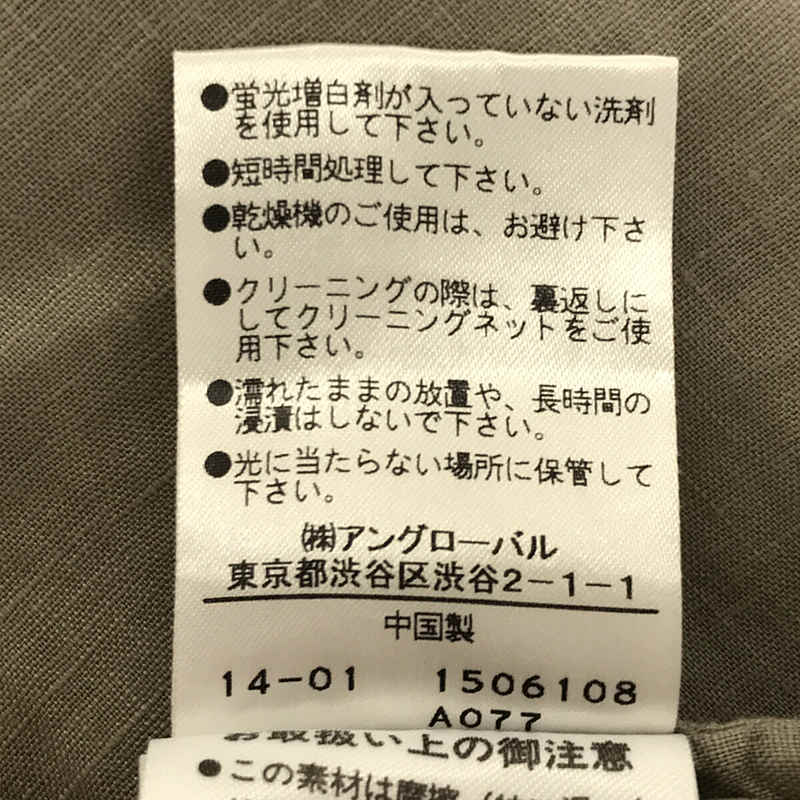 ●蛍光増白剤が入っていない洗剤
を使用して下さい。
●短時間処理して下さい。
●乾燥機のご使用は、お避け下さ
い。
●クリーニングの際は、裏返しに
してクリーニングネットをご使
用下さい。
●濡れたままの放置や、長時間の
浸漬はしないで下さい。
●光に当たらない場所に保管して
下さい。
㈱アングローバル
東京都渋谷区渋谷2-1-1
中国製
14-01 1506108
A077
お取扱い上の御注意
●この素材は摩擦